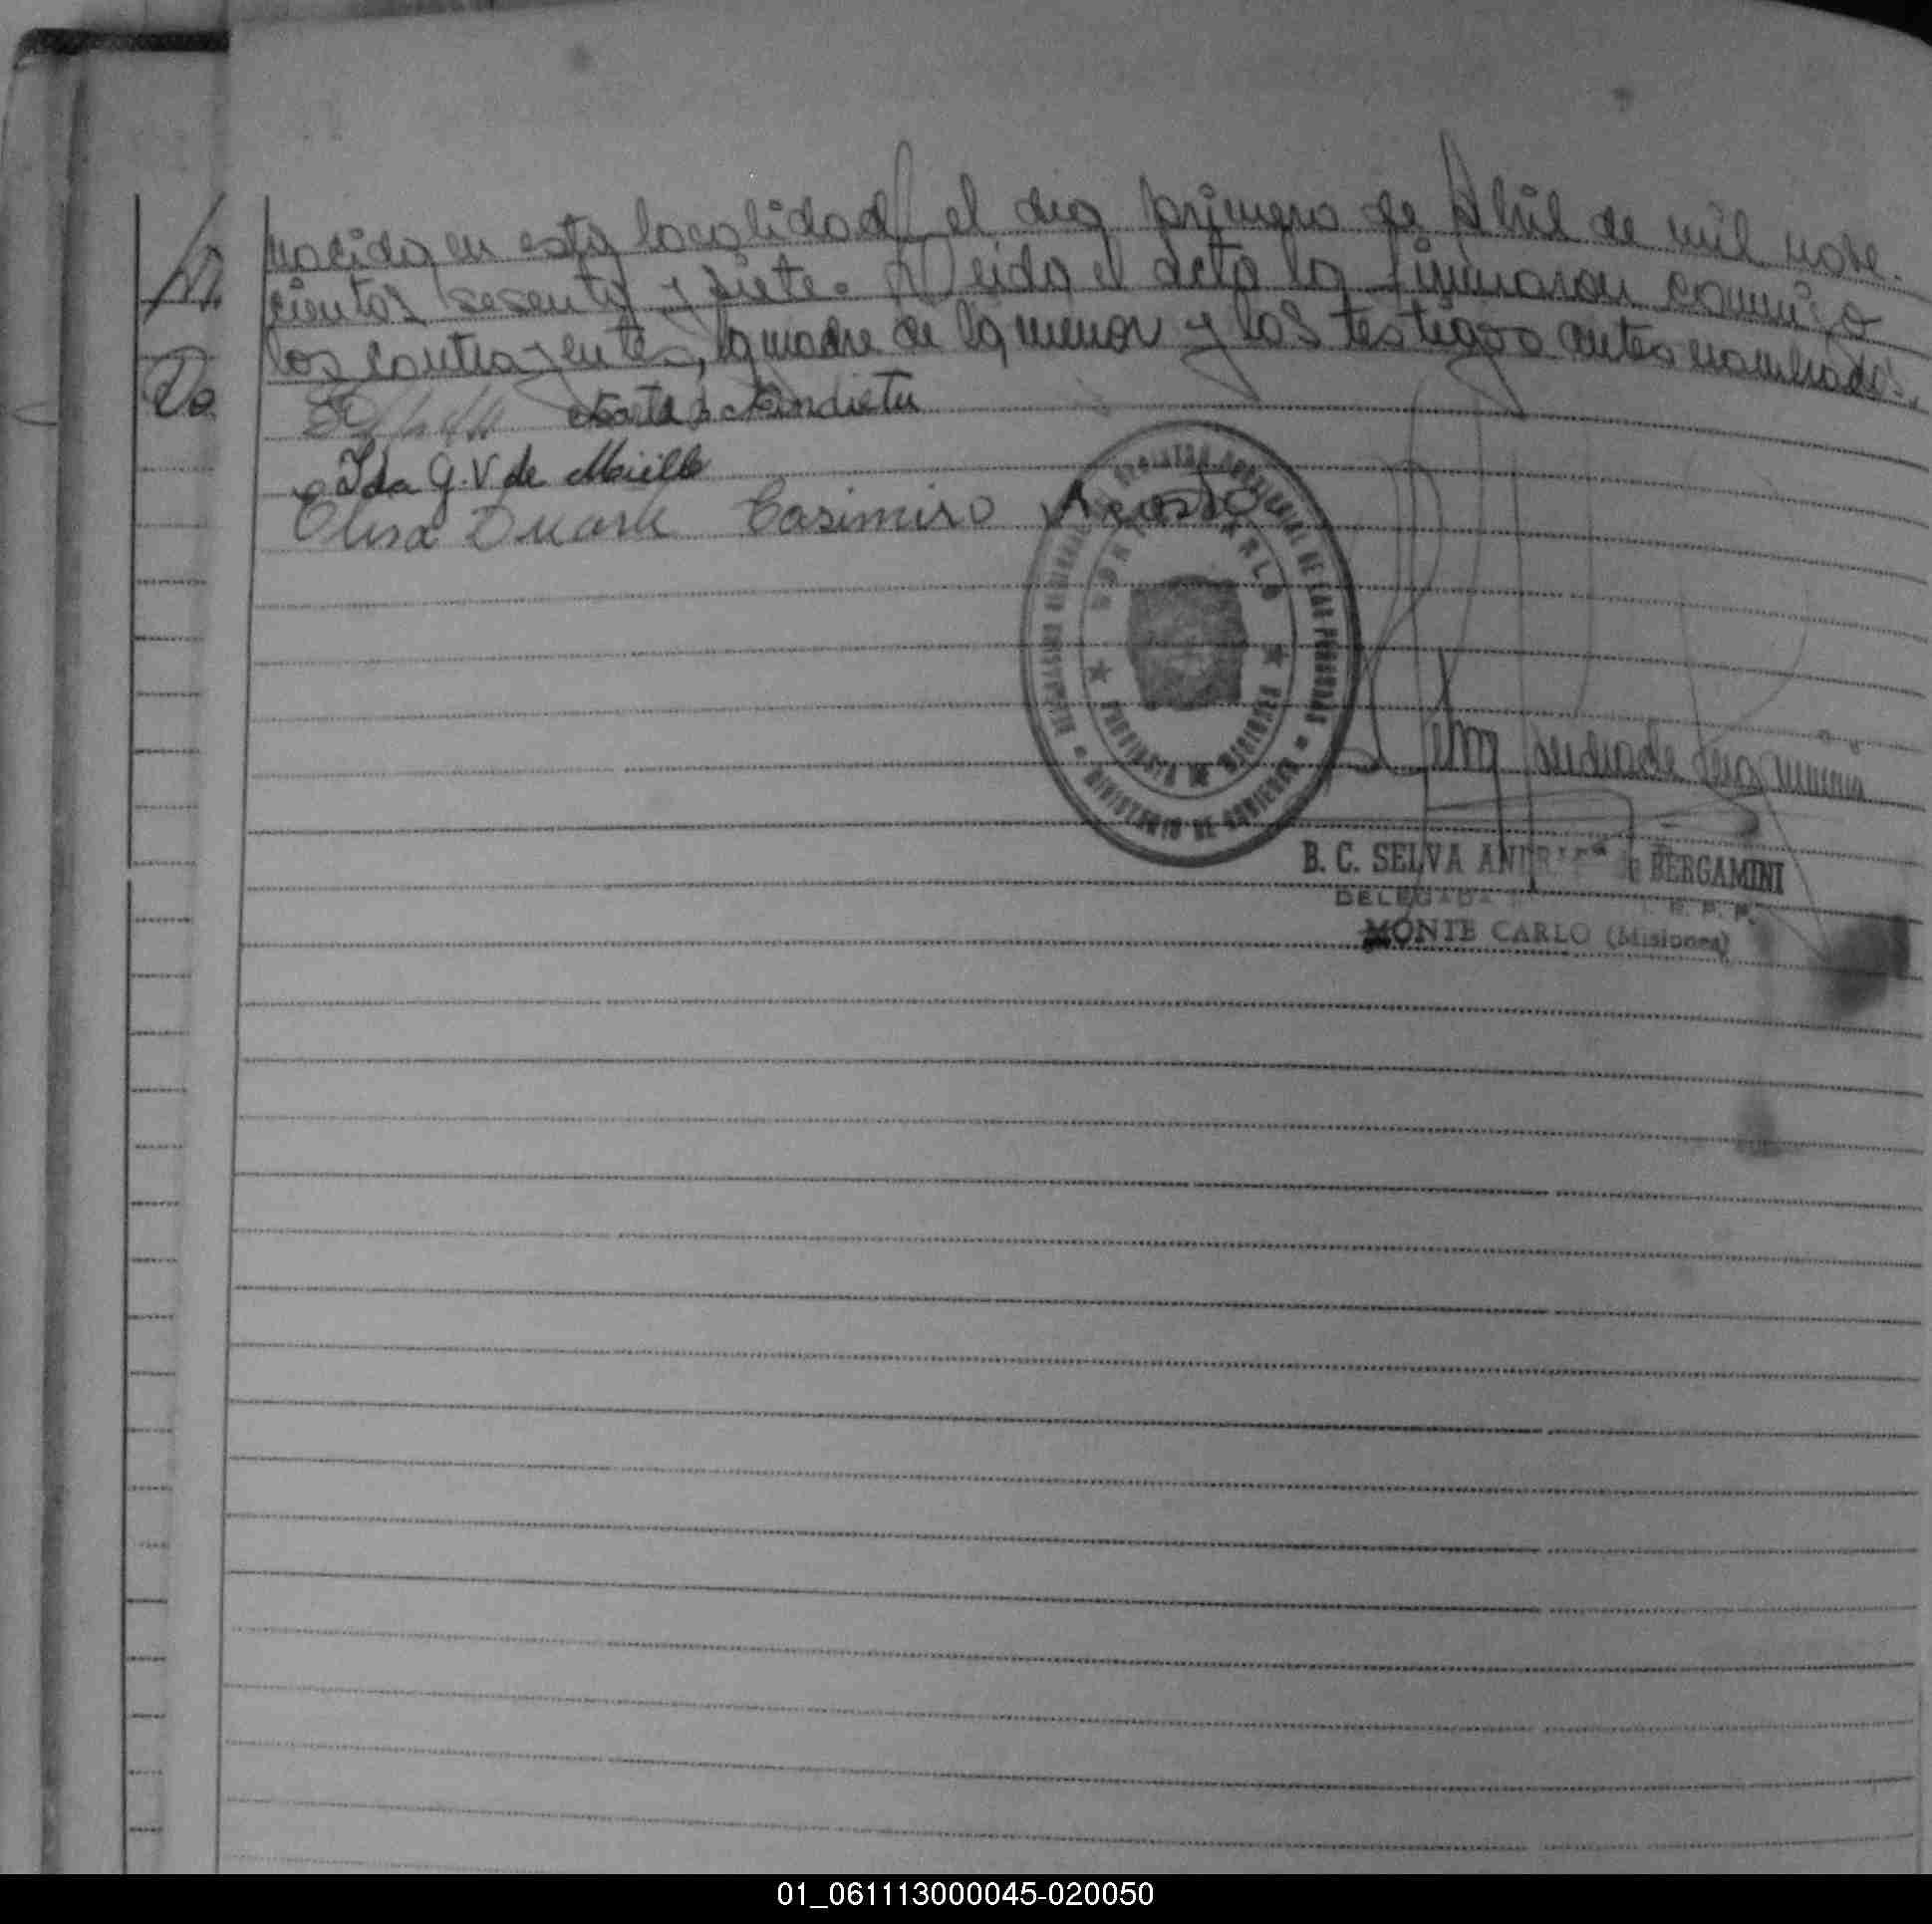 nacida en esta localidad el dia primero de Abril de mil nove-
cientos sesenta y siete. Leida el acta la firmaron conmigo
los contrayentes, la madre de la menor y los testigos antes nombrados.
Ida G. V. de
Elisa Duarte Casimiro Acosta
MONTE CARLO
PROVINCIA DE MISIONES
MINISTERIO DE GOBIERNO
DE LAS PERSONAS
B. C. SELVA ANDRADE de BERGAMINI
DELEGADA
MONTE CARLO (Misiones)
01_061113000045-020050